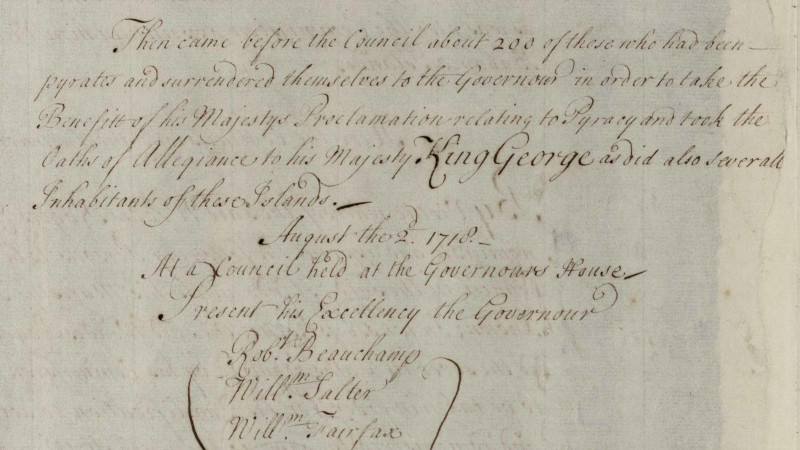 Then came before the Council about 200 of these who had been
pyrates and surrendered themselves to the Governour in order to take the
Benefitt of his Majestys Proclamation relating to Pyracy and took the
Oaths of Allegiance to his Majesty King George as did also severall
Inhabitants of these Islands.
August the 2d. 1718.
At a Council held at the Governours House
Present his Excellency the Governour
Robt. Beauchamp
Willm. Salter
Willm. Fairfax